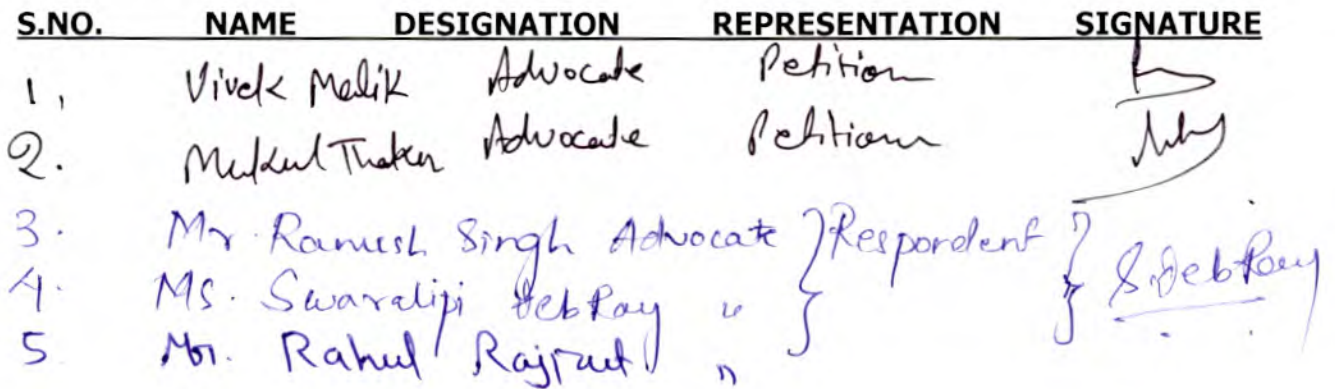 S.NO. NAME DESIGNATION REPRESENTATION SIGNATURE
1, Vivek Malik Advocate Petition
2. Mukul Thaker Advocate Petition
3. Mr. Ramesh Singh Advocate } Respondent }
4. Ms. Swaralipi Deb Roy " } } S. Deb Roy
5 Mr. Rahul Rajput "